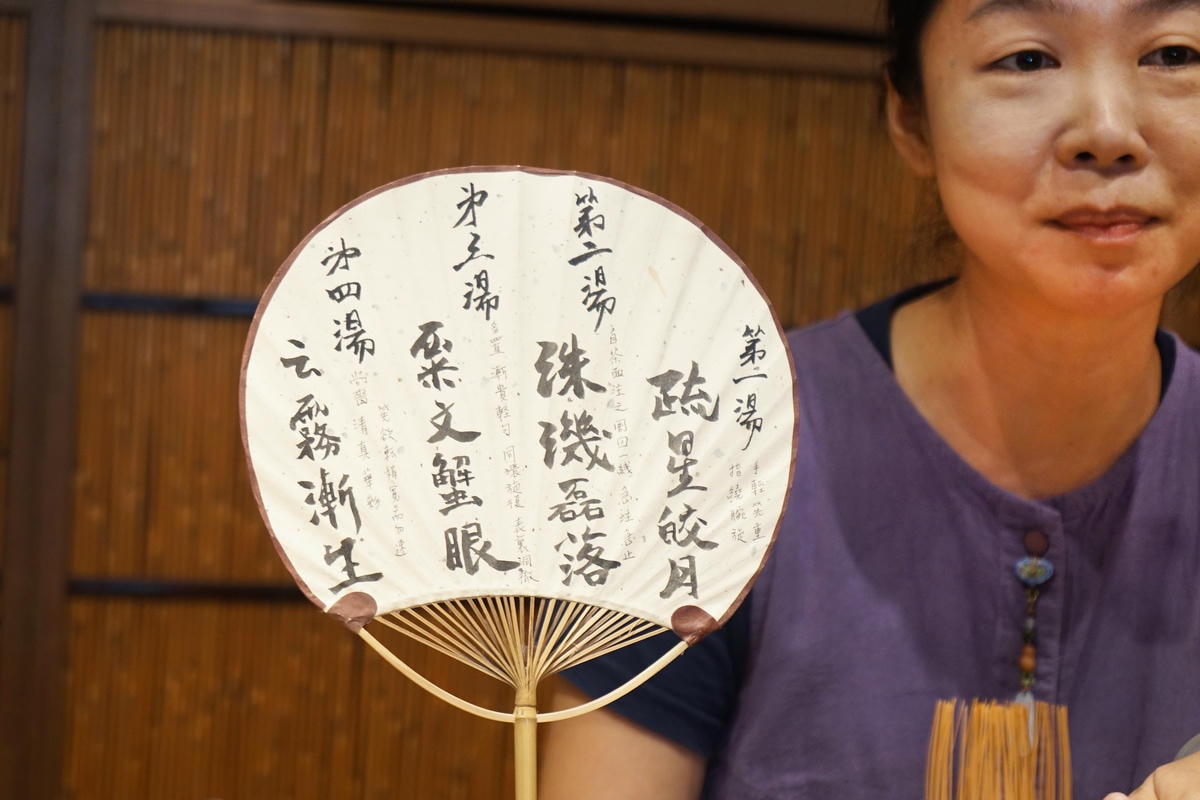 第一湯
手輕筅重
指繞腕旋
疏星皎月
第二湯
自茶面注之周回一線 急注急止
珠璣磊落
第三湯
多置 漸貴輕勻 同環旋復 表裏洞徹
粟文蟹眼
第四湯
尚嗇 清真華彩
筅欲転稍寬而勿速
云霧漸生